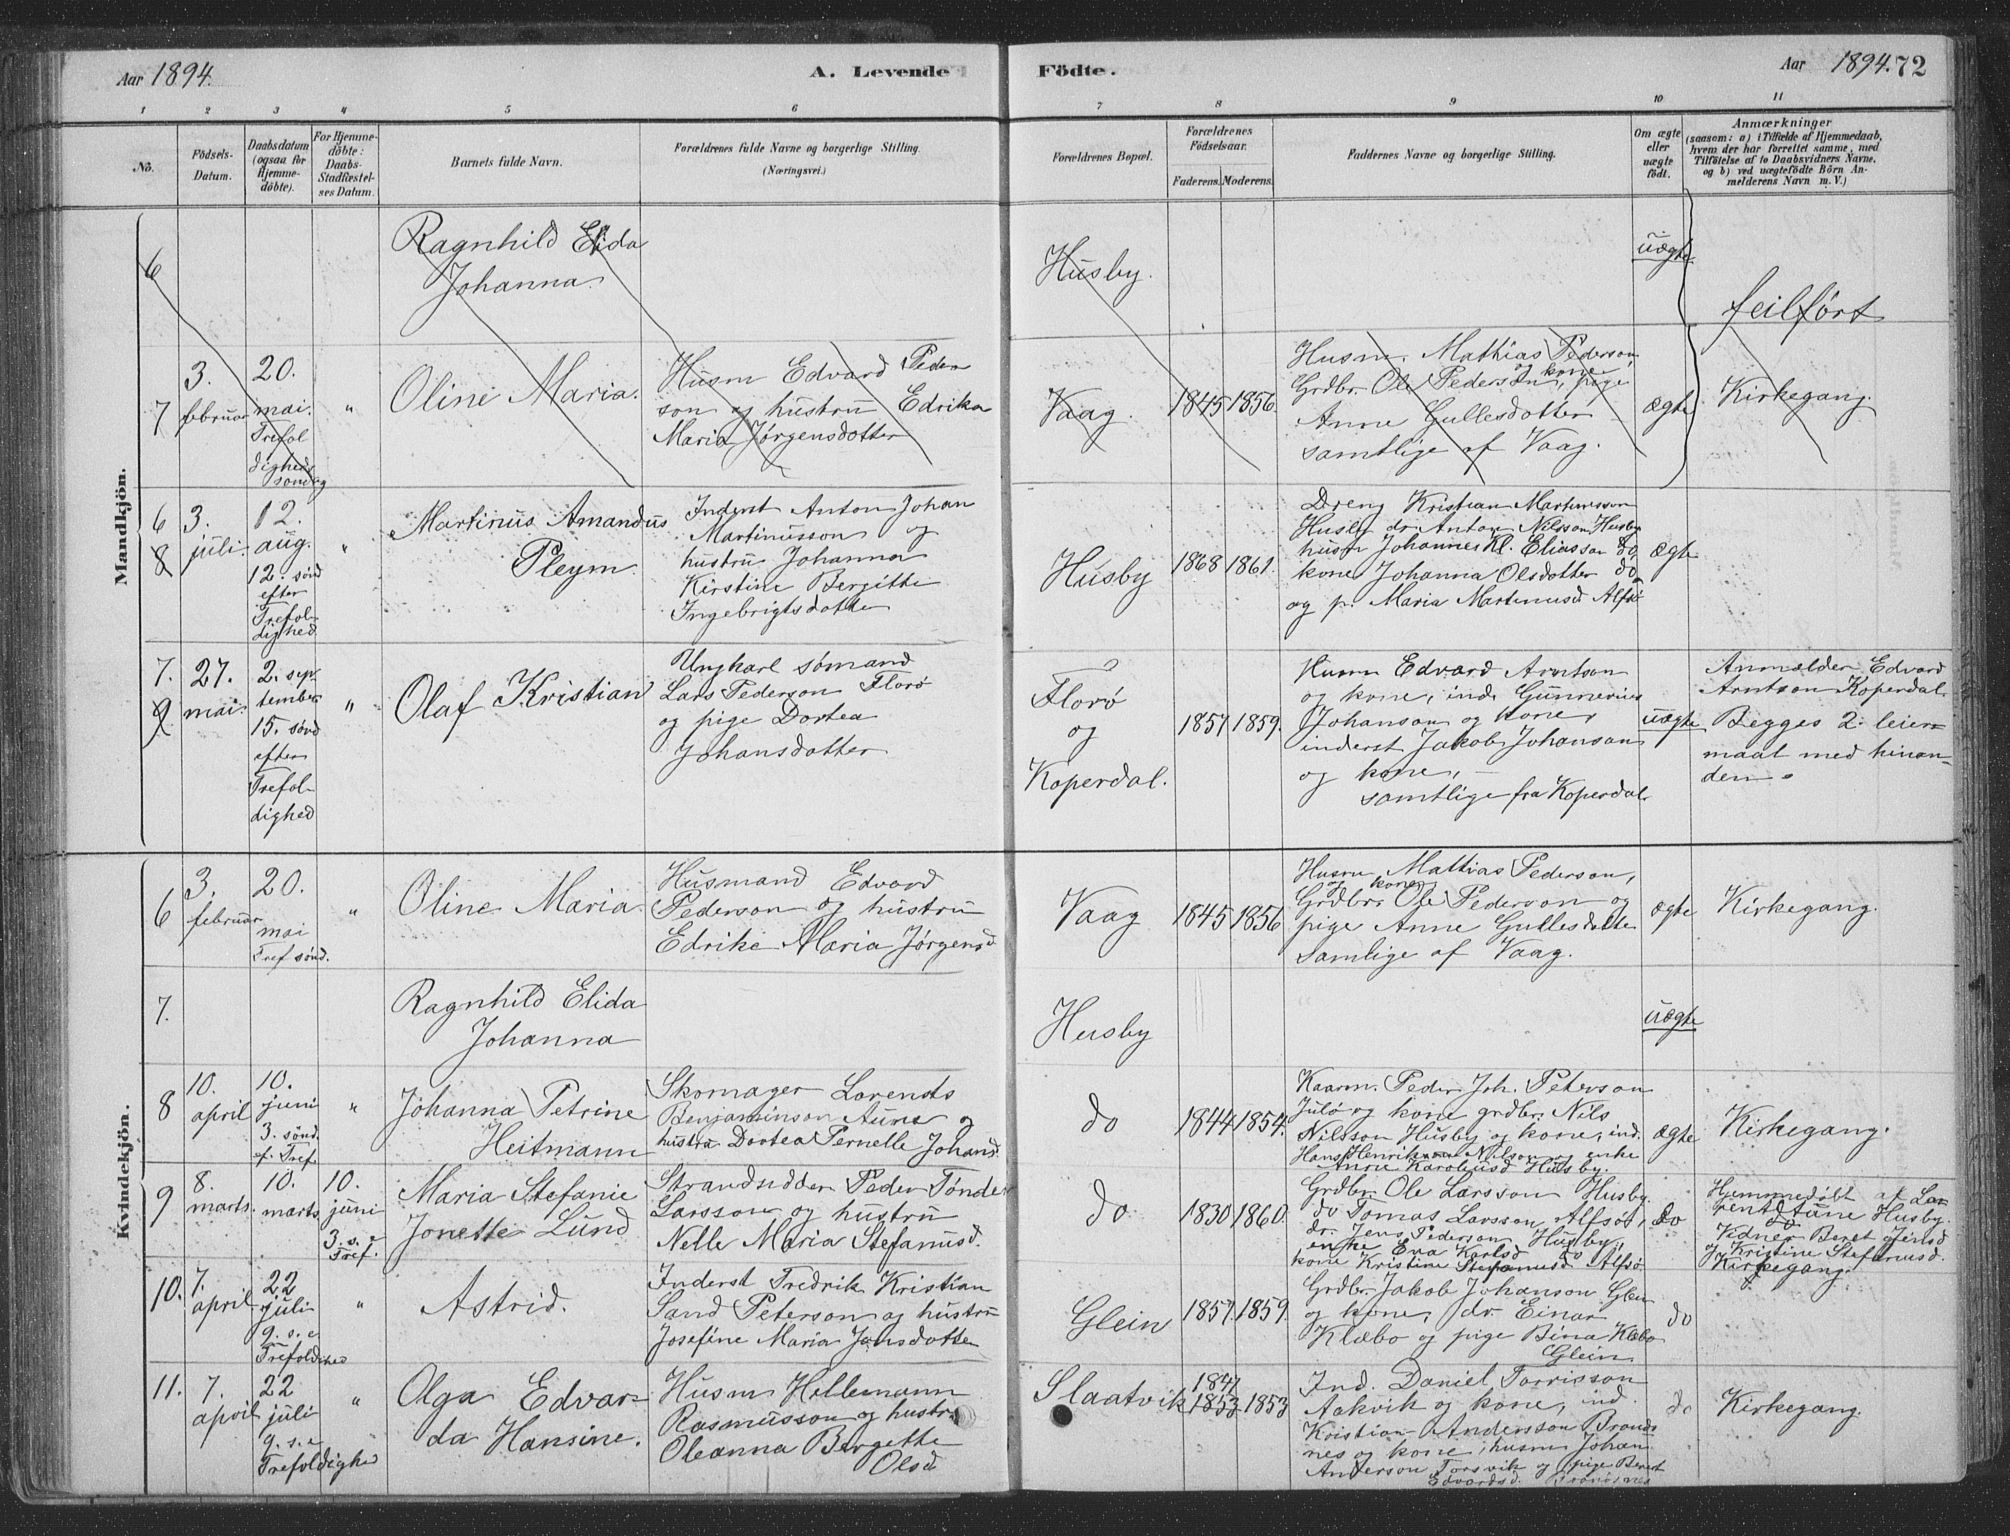 Aar 1894.
A. Levende
Födte.
Aar 1894. 72
1 2 3 4 5 6 7 8 9 10 11
No.
Födsels-
Datum.
Daabsdatum
(ogsaa for
Hjemme-
döbte).
For Hjemme-
döbte:
Daabs-
Stadfæstel-
ses Datum.
Barnets fulde Navn.
Forældrenes fulde Navne og borgerlige Stilling.
(Næringsvei.)
Forældrenes Bopæl.
Forældrenes
Födselsaar.
Faderens. Moderens.
Faddernes Navne og borgerlige Stilling.
Om ægte
eller
uægte
födt.
Anmærkninger
(saasom: a) i Tilfælde af Hjemmedaab,
hvem der har forrettet samme, med
Tilföielse af to Daabsvidners Navne,
og b) ved uægtefödte Börn An-
melderens Navn m. V.)
Mandkjön.
6
Ragnhild Elida
Johanna
Husby.
uægte
feilført
7
3.
februar
20.
mai.
Trefol
digheds
søndag
"
Oline Maria.
Husm Edvard Peder
son og hustru Edrika
Maria Jørgensdotter
Vaag.
1845 1856.
Husm. Mathias Pederson,
og kone,
Grdbr. Ole Pederson, pige
Anne Gullesdotter
samtlige af Vaag.
ægte
Kirkegang.
6
8
3.
juli
12.
aug.
12. sønd
efter
Trefol-
dighed
"
Martinus Amandus
Pleym.
Inderst Anton Johan
Martinusson og
hustru Johanna
Kirstine Bergitte
Ingebrigtsdotter
Husby
1868 1861.
Dreng Kristian Martinusson
Husby dr. Anton Nilsson Husby
husm Johannes Kl. Eliasson do,
kone Johanna Olsdotter do
og p. Maria Martinusd Alfsø
ægte
7.
9
27.
mai.
2. sep
tember
15. sønd
efter
Trefol-
dighed
"
Olaf Kristian
Ungkarl sømand
Lars Pederson Florø
og pige Dortea
Johansdotter
Florø
og
Koperdal.
1857 1859.
Husm Edvard Arntson
og kone, ind. Gunnerius
Johanson og kone,
inderst Jakob Johanson
og kone, —
samtlige fra Koperdal.
uægte
Anmelder Edvard
Arntson Koperdal.
Begges 2. leier-
maal med hinan-
den.
Kvindekjön.
6
3.
februar
20.
mai
Tref sønd.
"
Oline Maria
Husmand Edvard
Pederson og hustru
Edrike Maria Jørgensd
Vaag
1845 1856
Husm Mathias Pederson,
og kone
Grdbr. Ole Pederson og
pige Anne Gullesdotter
samlige af Vaag.
ægte
Kirkegang.
7.
Ragnhild Elida
Johanna
Husby
uægte
8
10.
april
10.
juni
3. sønd.
e. Tref
"
Johanna Petrine
Heitmann
Skomager Lorents
Benjaminson Aune og
hustru Dortea Pernelle Johansd.
do
1844 1854.
Kaarm. Peder Joh. Peterson
Julø og kone grdbr. Nils
Nilsson Husby og kone, ind.
Hans Henrik Nilson og enke
Anne Karoliusd Husby.
ægte
Kirkegang.
9
8.
marts.
10.
marts
10.
juni
3. s. e
Tref.
Maria Stefanie
Jonette Lund
Strandsidder Peder Tønder
Larsson og hustru
Nelle Maria Stefanusd.
do
1830 1860.
Grdbr. Ole Larsson Husby
do Tomas Larsson Alfsøt,
dr. Jens Pederson Husby,
enke Eva Karlsd do,
kone Kristine Stefanusd Alfsø
do
Hjemmedøbt af Lo-
rents Aune Husby.
Vidner Beret
Kristine Stefanusd.
Kirkegang.
10.
7.
april
22
juli
9. s. e
Trefoldighed
"
Astrid.
Inderst Fredrik Kristian
Sand Peterson og hustru
Josefine Maria Jonsdotter
Glein
1857. 1859.
Grdbr. Jakob Johanson Glein
og kone, dr. Einar
Klæbo og pige Bina Klæbo
Glein
do
11.
7.
april
22
juli
9. s. e
Trefoldighed
"
Olga Edvar-
da Hansine.
Husm Hollemann
Rasmusson og hustr.
Oleanna Bergette
Olsd
Slaatvik
1847
1853 1853
Ind. Daniel Torrisson
Aakvik og kone, ind.
Kristian Anderson Brand
nes og kone, husm Johan
Anderson Forsvik og pige Beret
Edvardsd.
do
Kirkegang.